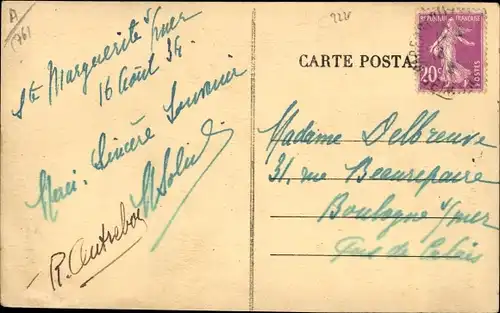 A
1761
222
Ste Marguerite s/mer
16 Août 34
Merci. Sincère Souvenir
CARTE POSTA
REPUBLIQUE FRANÇAISE
20c
POSTES
Madame Delbreuve
31, rue Beaurepaire
Boulogne s/mer
Pas de Calais